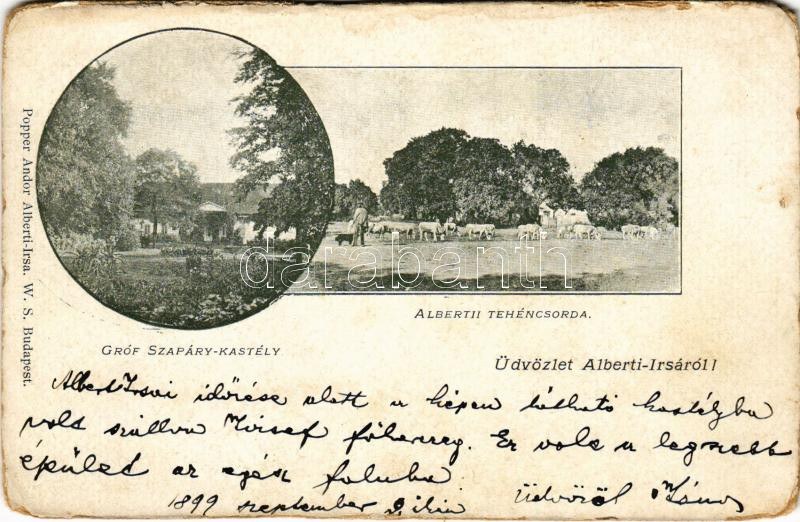 Popper Andor Alberti-Irsa. W. S. Budapest.
ALBERTII TEHÉNCSORDA.
GRÓF SZAPÁRY-KASTÉLY
Üdvözlet Alberti-Irsáról!
darabanth
Alberti Irsai időzése alatt a képen látható kastélyba
volt szállva József főherceg. Ez volt a legszebb
épület az egész faluba
1899 szeptember
Üdvözöl János